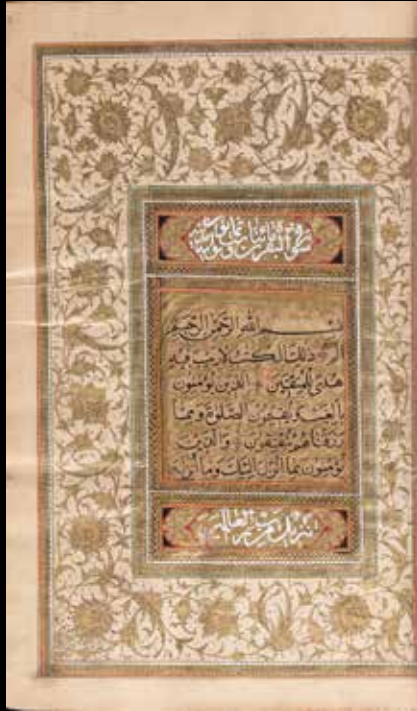 البقرة مائتان
بسم الله الرحمن الرحيم
الم ذلك الكتب لا ريب فيه
هدى للمتقين الذين يؤمنون
بالغيب ويقيمون الصلوة ومما
رزقناهم ينفقون والذين
يؤمنون بما انزل اليك وما انزل
تنزيل من رب العالمين